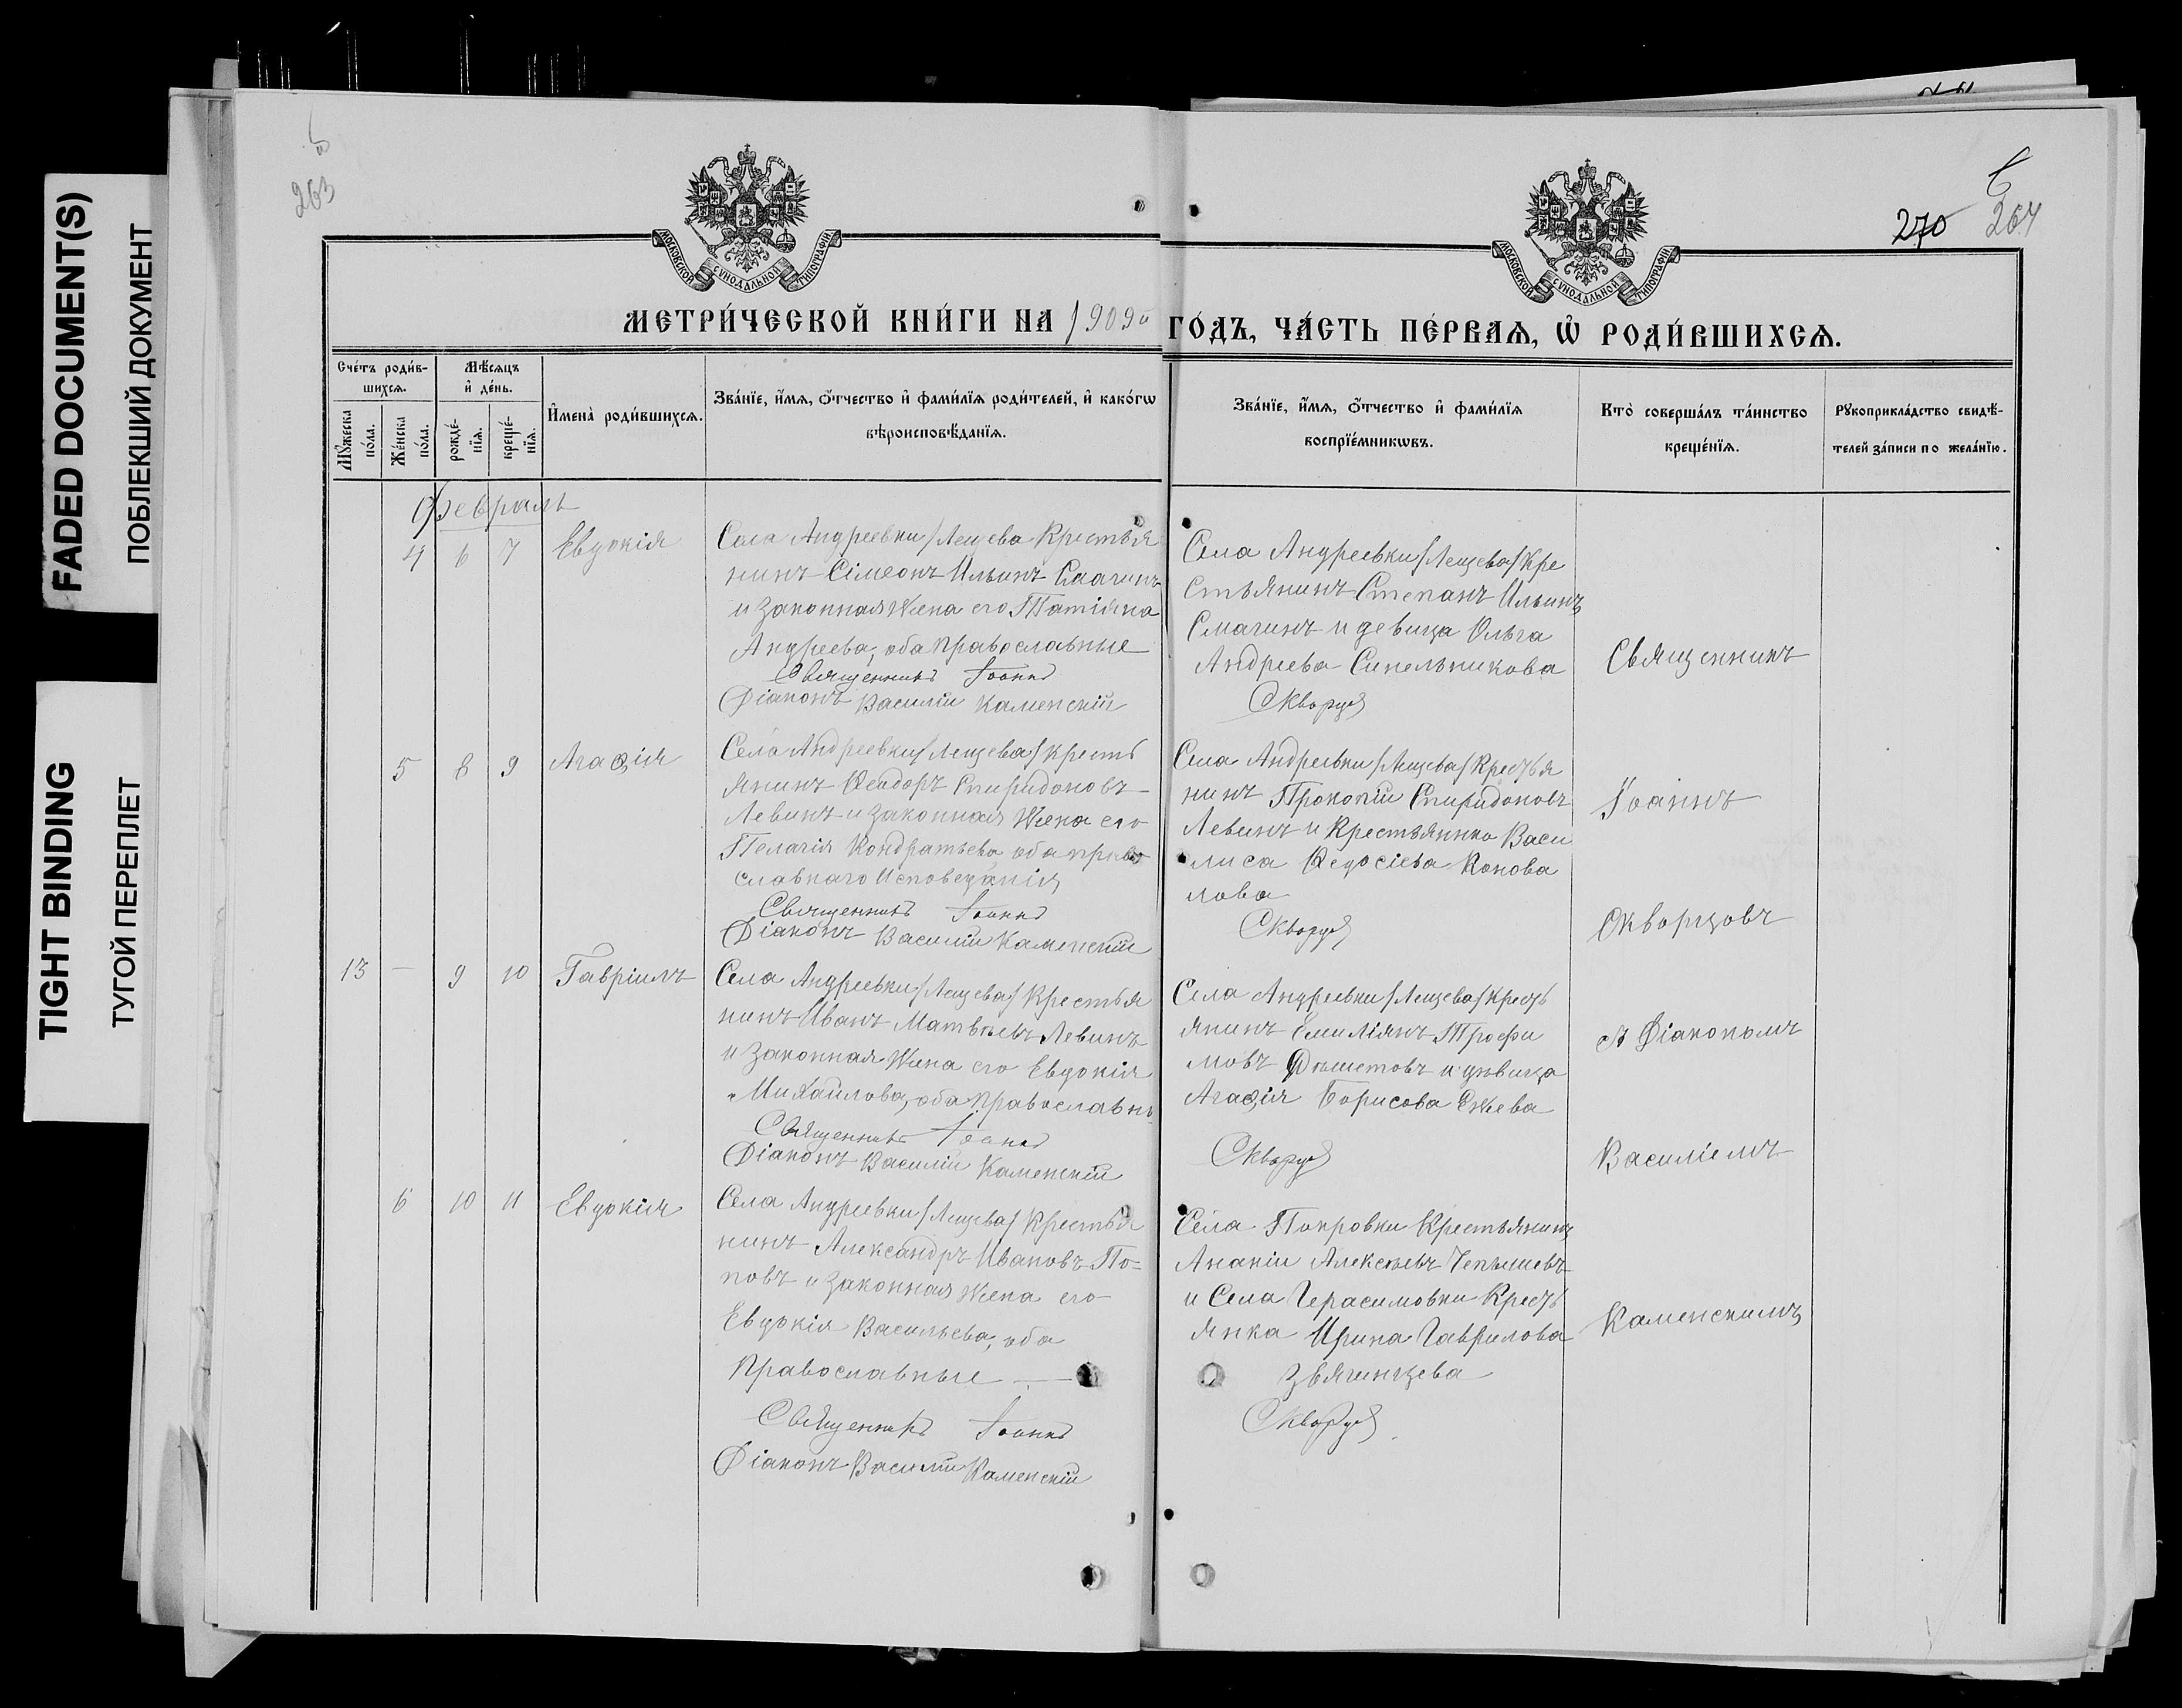 FADED DOCUMENT(S)
ПОБЛЕКШИЙ ДОКУМЕНТ
TIGHT BINDING
ТУГОЙ ПЕРЕПЛЕТ
263
270 264
МОСКОВСКОЙ СѴНОДАЛЬНОЙ ТИПОГРАФІИ
МОСКОВСКОЙ СѴНОДАЛЬНОЙ ТИПОГРАФІИ
МЕТРИ́ЧЕСКОЙ КНИ́ГИ НА 1909й ГО́ДЪ, ЧА́СТЬ ПЕ́РВАѦ, Ѡ҆ РОДИ́ВШИХСѦ.
Сче́тъ роди́в-
шихсѧ.
Мꙋ́жеска
по́ла.
Же́нска
по́ла.
Мѣ́сѧцъ
и҆ де́нь.
рожде́-
нїѧ.
креще́-
нїѧ.
И҆мена̀ роди́вшихсѧ.
Зва́нїе, и҆́мѧ, ѻ҆́тчество и҆ фами́лїѧ роди́телей, и҆ како́гѡ
вѣроисповѣ́данїѧ.
Зва́нїе, и҆́мѧ, ѻ҆́тчество и҆ фами́лїѧ
воспрїе́мникѡвъ.
Кто̀ соверша́лъ та́инство
креще́нїѧ.
Рꙋкоприкла́дство свидѣ́-
телей за́писи по жела́нїю.
Февраль
4 6 7 Евдокія
Села Андреевки /Лещева Крестья
нинъ Сімеонъ Ильинъ Смагинъ
и законная жена его Татіяна
Андреева, оба православные
Священникъ Іоаннъ
Діаконъ Василій Каменскій
Села Андреевки /Лещева/ Кре
стьянинъ Степанъ Ильинъ
Смагинъ и девица Ольга
Андреева Синельникова
Скворцов
Священникъ
5 8 9 Агаѳія
Села Андреевки /Лещева/ кресть
янинъ Ѳеодоръ Спиридоновъ
Левинъ и законная жена его
Пелагія Кондратьева оба право
славнаго Исповеданія
Священникъ Іоаннъ
Діаконъ Василій Каменскій
Села Андреевки /Лещева/ Крестья
нинъ Прокопій Спиридоновъ
Левинъ и Крестьянка Васи
лиса Ѳедосіева Конова
лова
Скворцов
Іоаннъ
Скворцовъ
13 — 9 10 Гавріилъ
Села Андреевки /Лещева/ Крестья
нинъ Иванъ Матвѣевъ Левинъ
и законная жена его Евдокія
Михайлова, оба православн.
Священникъ Іоаннъ
Діаконъ Василій Каменскій
Села Андреевки /Лещева/ Кресть
янинъ Емиліянъ Трофи
мовъ и дѣвица
Агаѳія Борисова Ежева
Скворцов
съ Діакономъ
Василіемъ
6 10 11 Евдокія
Села Андреевки /Лещева/ Крестья
нинъ Александръ Ивановъ По=
повъ и законная жена его
Евдокія Васильева, оба
Православные —
Священникъ Іоаннъ
Діаконъ Василій Каменскій
Села Покровки Крестьянинъ
Ананій Алексѣевъ Чепышевъ
и Села Герасимовки Кресть
янка Ирина Гаврилова
Звягинцева
Скворцов
Каменскимъ